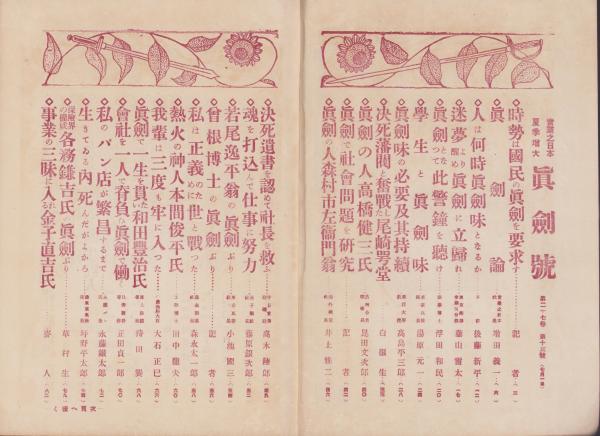 實業之日本
夏季增大
眞劍號
第二十七卷 第十三號 (七月一日)
時勢は國民の眞劍を要求す 記者
眞劍論 增田義一
人は何時眞劍味となるか 後藤新平
迷夢より醒め眞劍に立歸れ 藤山雷太
眞劍となつて此警鐘を聽け 浮田和民
學生と眞劍味 湯原元一
眞劍味の必要及其持續 高島平三郎
決死藩閥と奮戰した尾崎咢堂 白眼生
眞劍の人高橋健三氏 足田文次郎
眞劍で社會問題を研究 記者
眞劍の人森村市左衞門翁 井上雅二
決死遺書を認めて社長を救ふ
魂を打込んで仕事に努力 藤原銀次郎
若尾逸平翁の眞劍ぶり 小池國三
曾根博士の眞劍ぶり 記者
私は正義のために世と戰つた 森永太一郎
熱火の神人本間俊平氏 田中龍夫
我輩は三度も牢に入つた 大石正巳
眞劍で一生を貫いた和田豐治氏
會社を一人で脊負ふ眞劍の働 正田貞一郎
私のパン店が繁昌するまで 水藤鐵太郎
生きてゐる内死んだがよからう 平野平太郎
保險界の權威各務鎌吉氏の眞劍ぶり 草村生
事業の三昧に入れる金子直吉氏
次頁へ續く